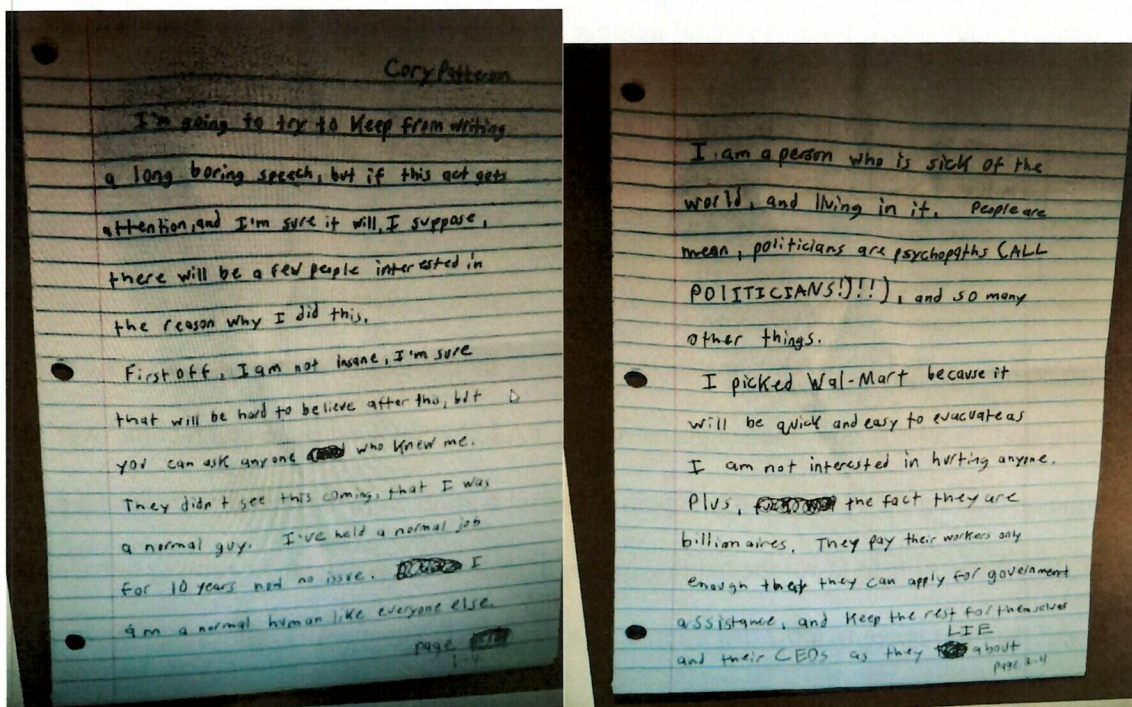 Cory Patterson
I'm going to try to Keep from writing
a long boring speech, but if this act gets
attention, and I'm sure it will, I suppose,
there will be a few people interested in
the reason why I did this.
First off, I am not insane, I'm sure
that will be hard to believe after this, but
you can ask anyone who knew me.
They didn't see this coming, that I was
a normal guy. I've held a normal job
for 10 years no issue. I
am a normal human like everyone else.
page 1-4
I am a person who is sick of the
world, and living in it. People are
mean, politicians are psychopaths (ALL
POLITICIANS!)!!), and so many
other things.
I picked Wal-Mart because it
will be quick and easy to evacuate as
I am not interested in hurting anyone.
Plus, the fact they are
billionaires. They pay their workers only
enough that they can apply for government
assistance, and Keep the rest for themselves
LIE
and their CEOs as they about
page 2-4